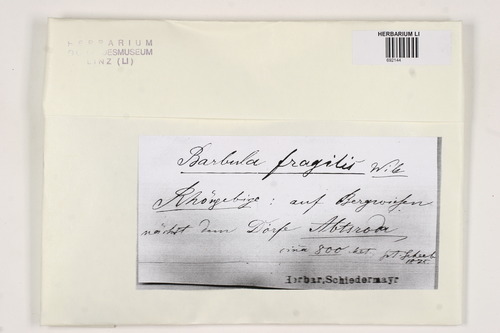 HERBARIUM
LANDESMUSEUM
LINZ (LI)
HERBARIUM LI
692144
Barbula fragilis Wils
Rhöngebirge: auf Bergwiesen
nächst dem Dorfe Abtsroda,
circa 800 met.
1875.
Herbar. Schiedermayr